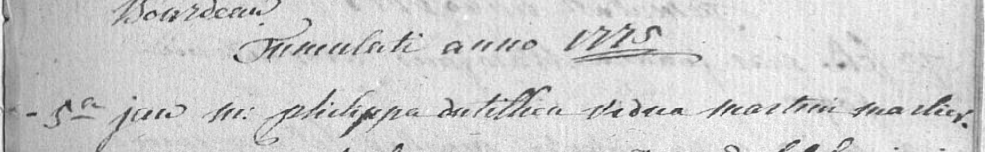 Bourdeau
Tumulati anno 1775
- 5a jan m: philippa dutilleu vidua martini marlier.